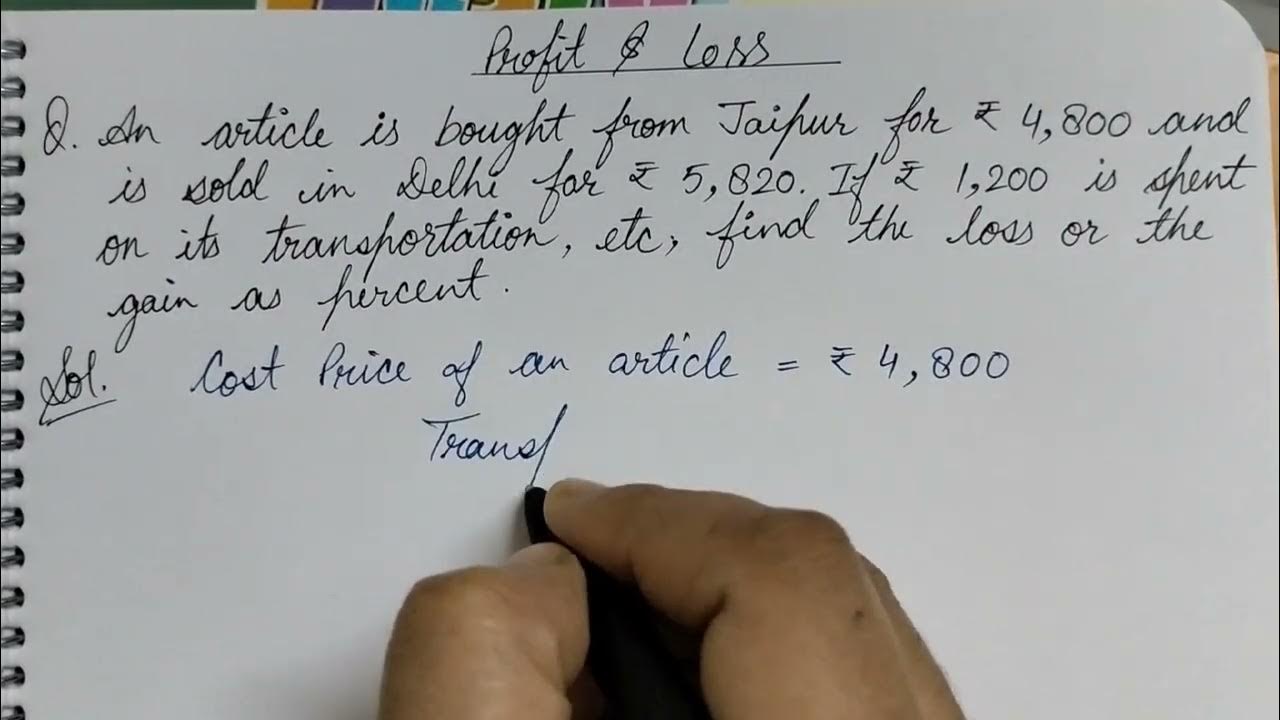 Profit & Loss
Q. An article is bought from Jaipur for ₹ 4,800 and
is sold in Delhi for ₹ 5,820. If ₹ 1,200 is spent
on its transportation, etc, find the loss or the
gain as percent.
Sol. Cost Price of an article = ₹ 4,800
Transp